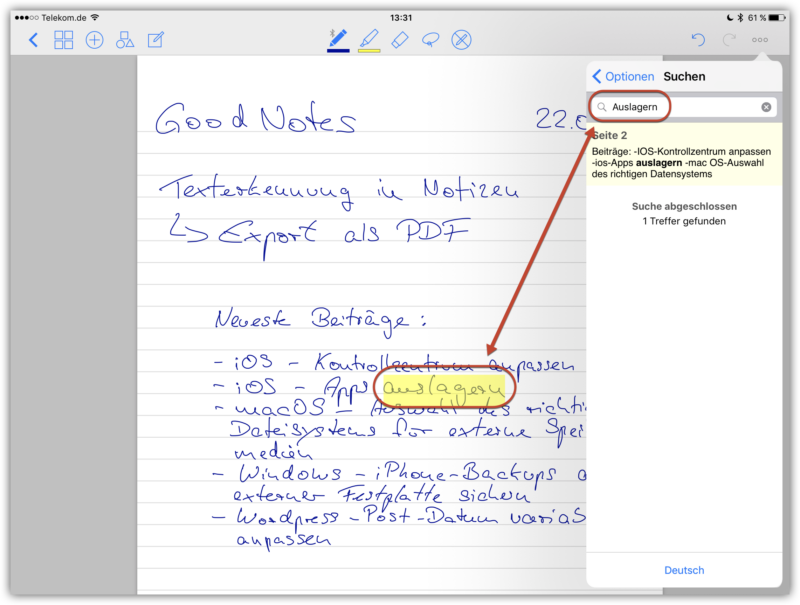 Telekom.de
13:31
61 %
Optionen
Suchen
Auslagern
Seite 2
Beiträge: -IOS-Kontrollzentrum anpassen
-ios-Apps auslagern -mac OS-Auswahl
des richtigen Datensystems
Suche abgeschlossen
1 Treffer gefunden
Deutsch
Good Notes 22.0
Texterkennung in Notizen
↳ Export als PDF
Neueste Beiträge:
- iOS - Kontrollzentrum anpassen
- iOS - Apps auslagern
- macOS - Auswahl des richti
Dateisystems für externe Spei
medien
- Windows - iPhone-Backups a
externer Festplatte sichern
- Wordpress - Post-Datum variab
anpassen